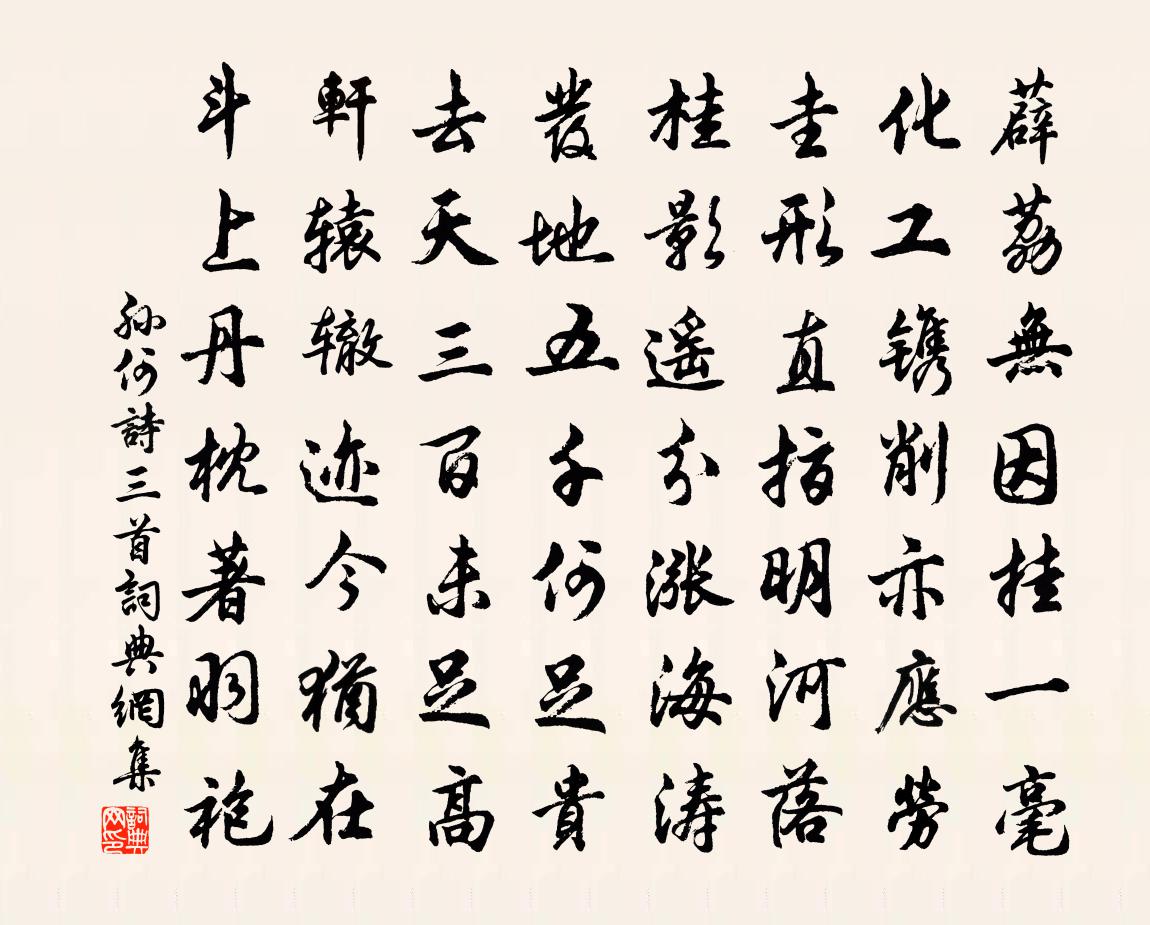 薜荔無因挂一毫
化工镌削亦應勞
圭形直指明河落
桂影遥分漲海涛
發地五千何足貴
去天三百未足高
軒辕辙迹今猶在
斗上丹枕著羽袍
孙何詩三首詞典網集
詞典网印